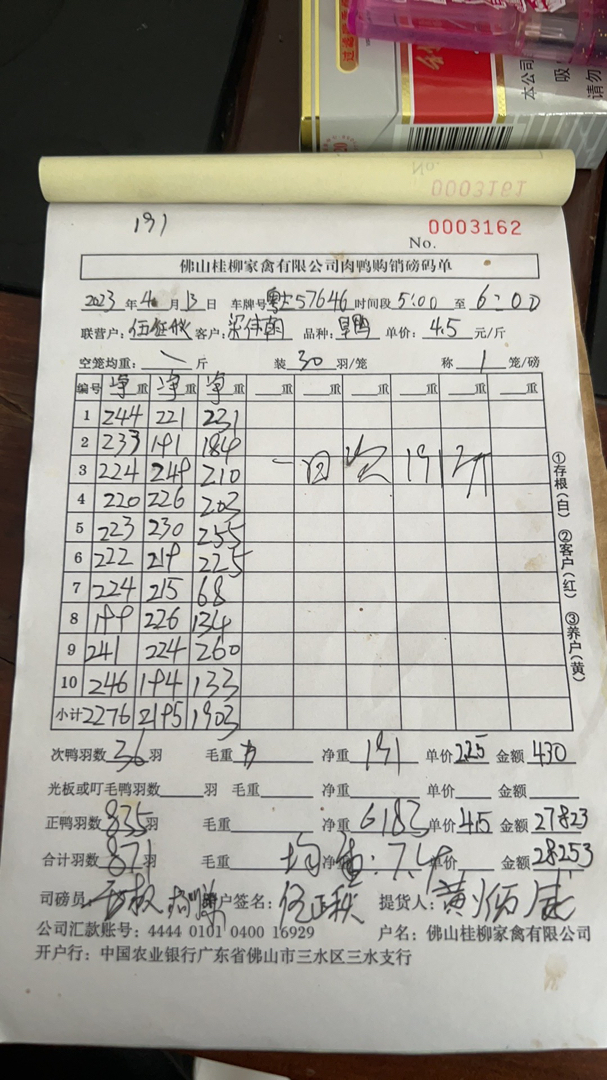 本公司
吸
请勿
No.
0003161
191
0003162
No.
佛山桂柳家禽有限公司肉鸭购销磅码单
2023 年 4 月 13 日 车牌号 57646 时间段 5:00 至 6:00
联营户: 客户:梁伟 品种: 单价: 4.5 元/斤
空笼均重: 斤 装 30 羽/笼 称 1 笼/磅
编号 净重 净重 净重 重 重 重 重 重 重
1 244 221 231
2 233 191 184
3 224 249 210 一 回 次 191 斤
4 220 226 203
5 223 230 255
6 222 219 225
7 224 215 68
8 199 226 134
9 241 224 260
10 246 194 133
小计 2276 2195 1903
①存根(白) ②客户(红) ③养户(黄)
次鸭羽数 36 羽 毛重 净重 191 单价 225 金额 430
光板或叮毛鸭羽数 羽 毛重 净重 单价 金额
正鸭羽数 835 羽 毛重 净重 6183 单价 45 金额 27823
合计羽数 871 羽 毛重 均重:7.4 净 单价 金额 28253
司磅员 户签名: 伍 提货人: 黄
公司汇款账号: 4444 0101 0400 16929 户名: 佛山桂柳家禽有限公司
开户行: 中国农业银行广东省佛山市三水区三水支行